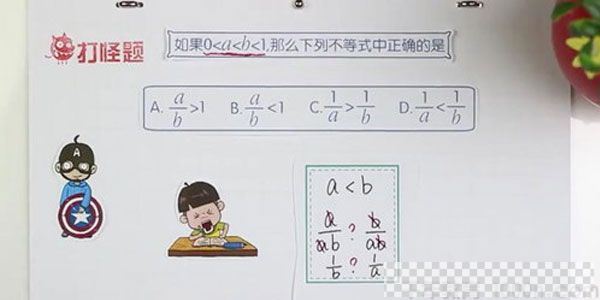 打怪题
如果0<a<b<1,那么下列不等式中正确的是
A. a/b>1 B. a/b<1 C. 1/a>1/b D. 1/a<1/b
A
a<b
a/ab ? b/ab
1/b ? 1/a